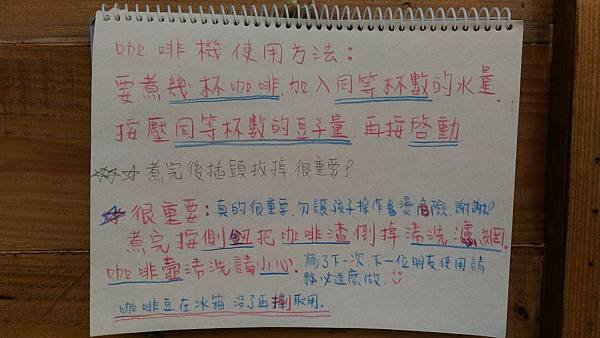 咖啡機使用方法：
要煮幾杯咖啡.加入同等杯數的水量.
按壓同等杯數的豆子量.再按啓動
☆☆☆煮完後插頭拔掉很重要!
☆很重要：真的很重要.勿讓孩子操作會燙危險.謝謝!
煮完按側鈕把咖啡渣倒掉清洗濾網.
咖啡壺清洗請小心.為了下一次.下一位朋友使用請
務必這麼做.
咖啡豆在冰箱.沒了再取用.